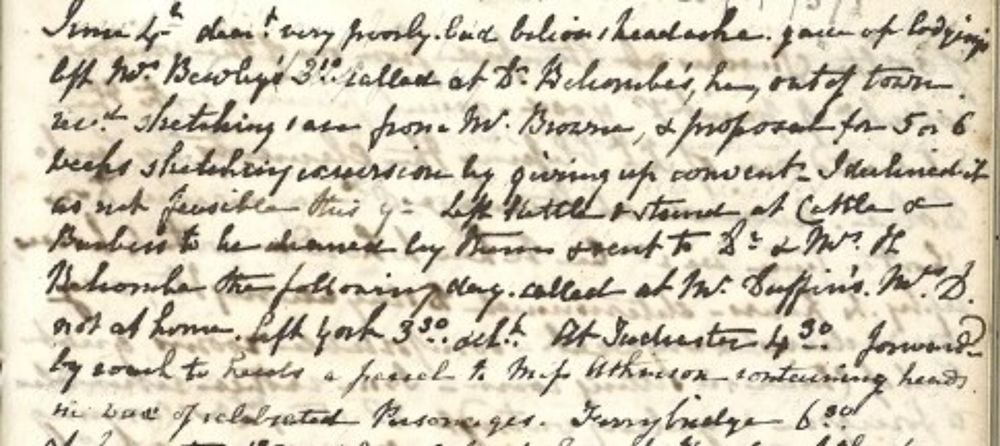 June 4th dear.t very poorly. bad bilious headache. gave up lodgings
left Mrs. Bewley's 3.10 called at Dr. Belcombe's, he, out of town.
rec.d sketching case from Mr. Browne, & proposal for 5 or 6
weeks sketching excursion by giving up convent - I declined it
as not feasible this yr. Left Kettle & stand at Cattle &
Barbers to be cleaned by them & sent to Dr. & Mrs. H
Belcombe the following day. called at Mr. Duffin's. Mrs. D.
not at home. left York 3.30 At Tadcaster 4.30 Forward
by coach to Leeds a parcel to Miss Atkinson containing heads
in wax of celebrated Personages. Ferrybridge 6.30